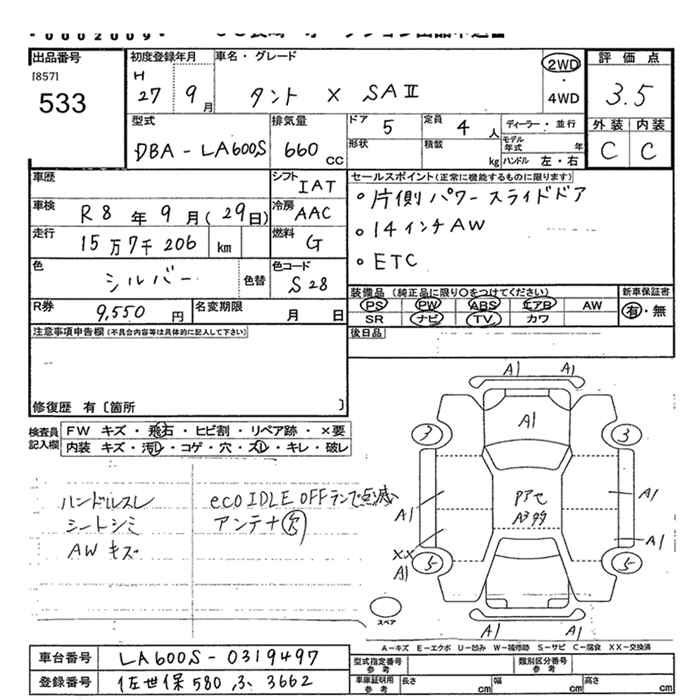 出品番号
[857]
533
初度登録年月
H
27 9月
車名・グレード
タント X SAⅡ
2WD
・
4WD
評価点
3.5
外装 内装
C C
型式
DBA-LA600S
排気量
660 cc
ドア 5
形状
定員 4 人
積載 kg
ディーラー・並行
モデル年式 年
ハンドル 左・右
車歴
シフト IAT
車検 R8年9月(29日)
冷房 AAC
走行 15万7千206 km
燃料 G
色 シルバー 色替
色コード S28
R券 9,550円
名変期限 月 日
セールスポイント(正常に機能するものに限ります)
・片側パワースライドドア
・14インチAW
・ETC
装備品(純正品に限り○をつけてください)
PS PW ABS エアB AW
SR ナビ TV カワ
新車保証書
有・無
注意事項申告欄(不具合内容等は具体的に記入して下さい)
後日品
修復歴 有〔箇所 〕
検査員記入欄
FW キズ・飛石・ヒビ割・リペア跡・×要
内装 キズ・汚れ・コゲ・穴・スレ・キレ・破レ
ハンドルスレ
シートシミ
AWキズ
eco IDLE OFFランプ点滅
アンテナ欠
A1 A1
A1
3 3
A1 A1
A1
XX
A1
5 5
A1 A1
スペア
A-キズ E-エクボ U-凹み W-補修跡 S-サビ C-腐食 XX-交換済
車台番号 LA600S-0319497
登録番号 佐世保 580 る 3662
型式指定番号 参考
類別区分番号 参考
車庫証明用 参考
長さ cm 幅 cm 高さ cm